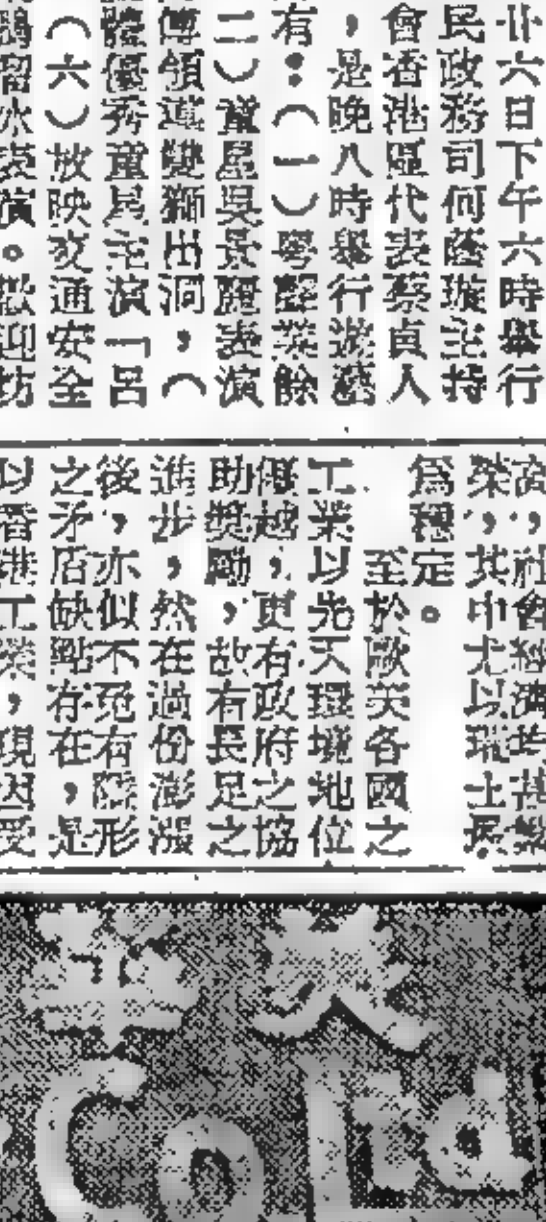 廿六日下午六時舉行
民政務司何蔭璇主持
會香港區代表蔡貞人
，是晚八時舉行游藝
有：（一）粵聲業餘
二）童星吳景麗表演
傅領導雙獅出洞，（
優秀童星演「呂
（六）放映交通安全
溜冰表演。歡迎坊
高，社會經濟均甚繁
榮，其中尤以瑞士最
爲穩定。
至於歐美各國之
工業以先天環境地位
優越，更有政府之協
助獎勵，故有長足之
進步，然在過份澎漲
後，亦似不免有隊形
之矛盾缺點存在，是
以香港工業，現因受